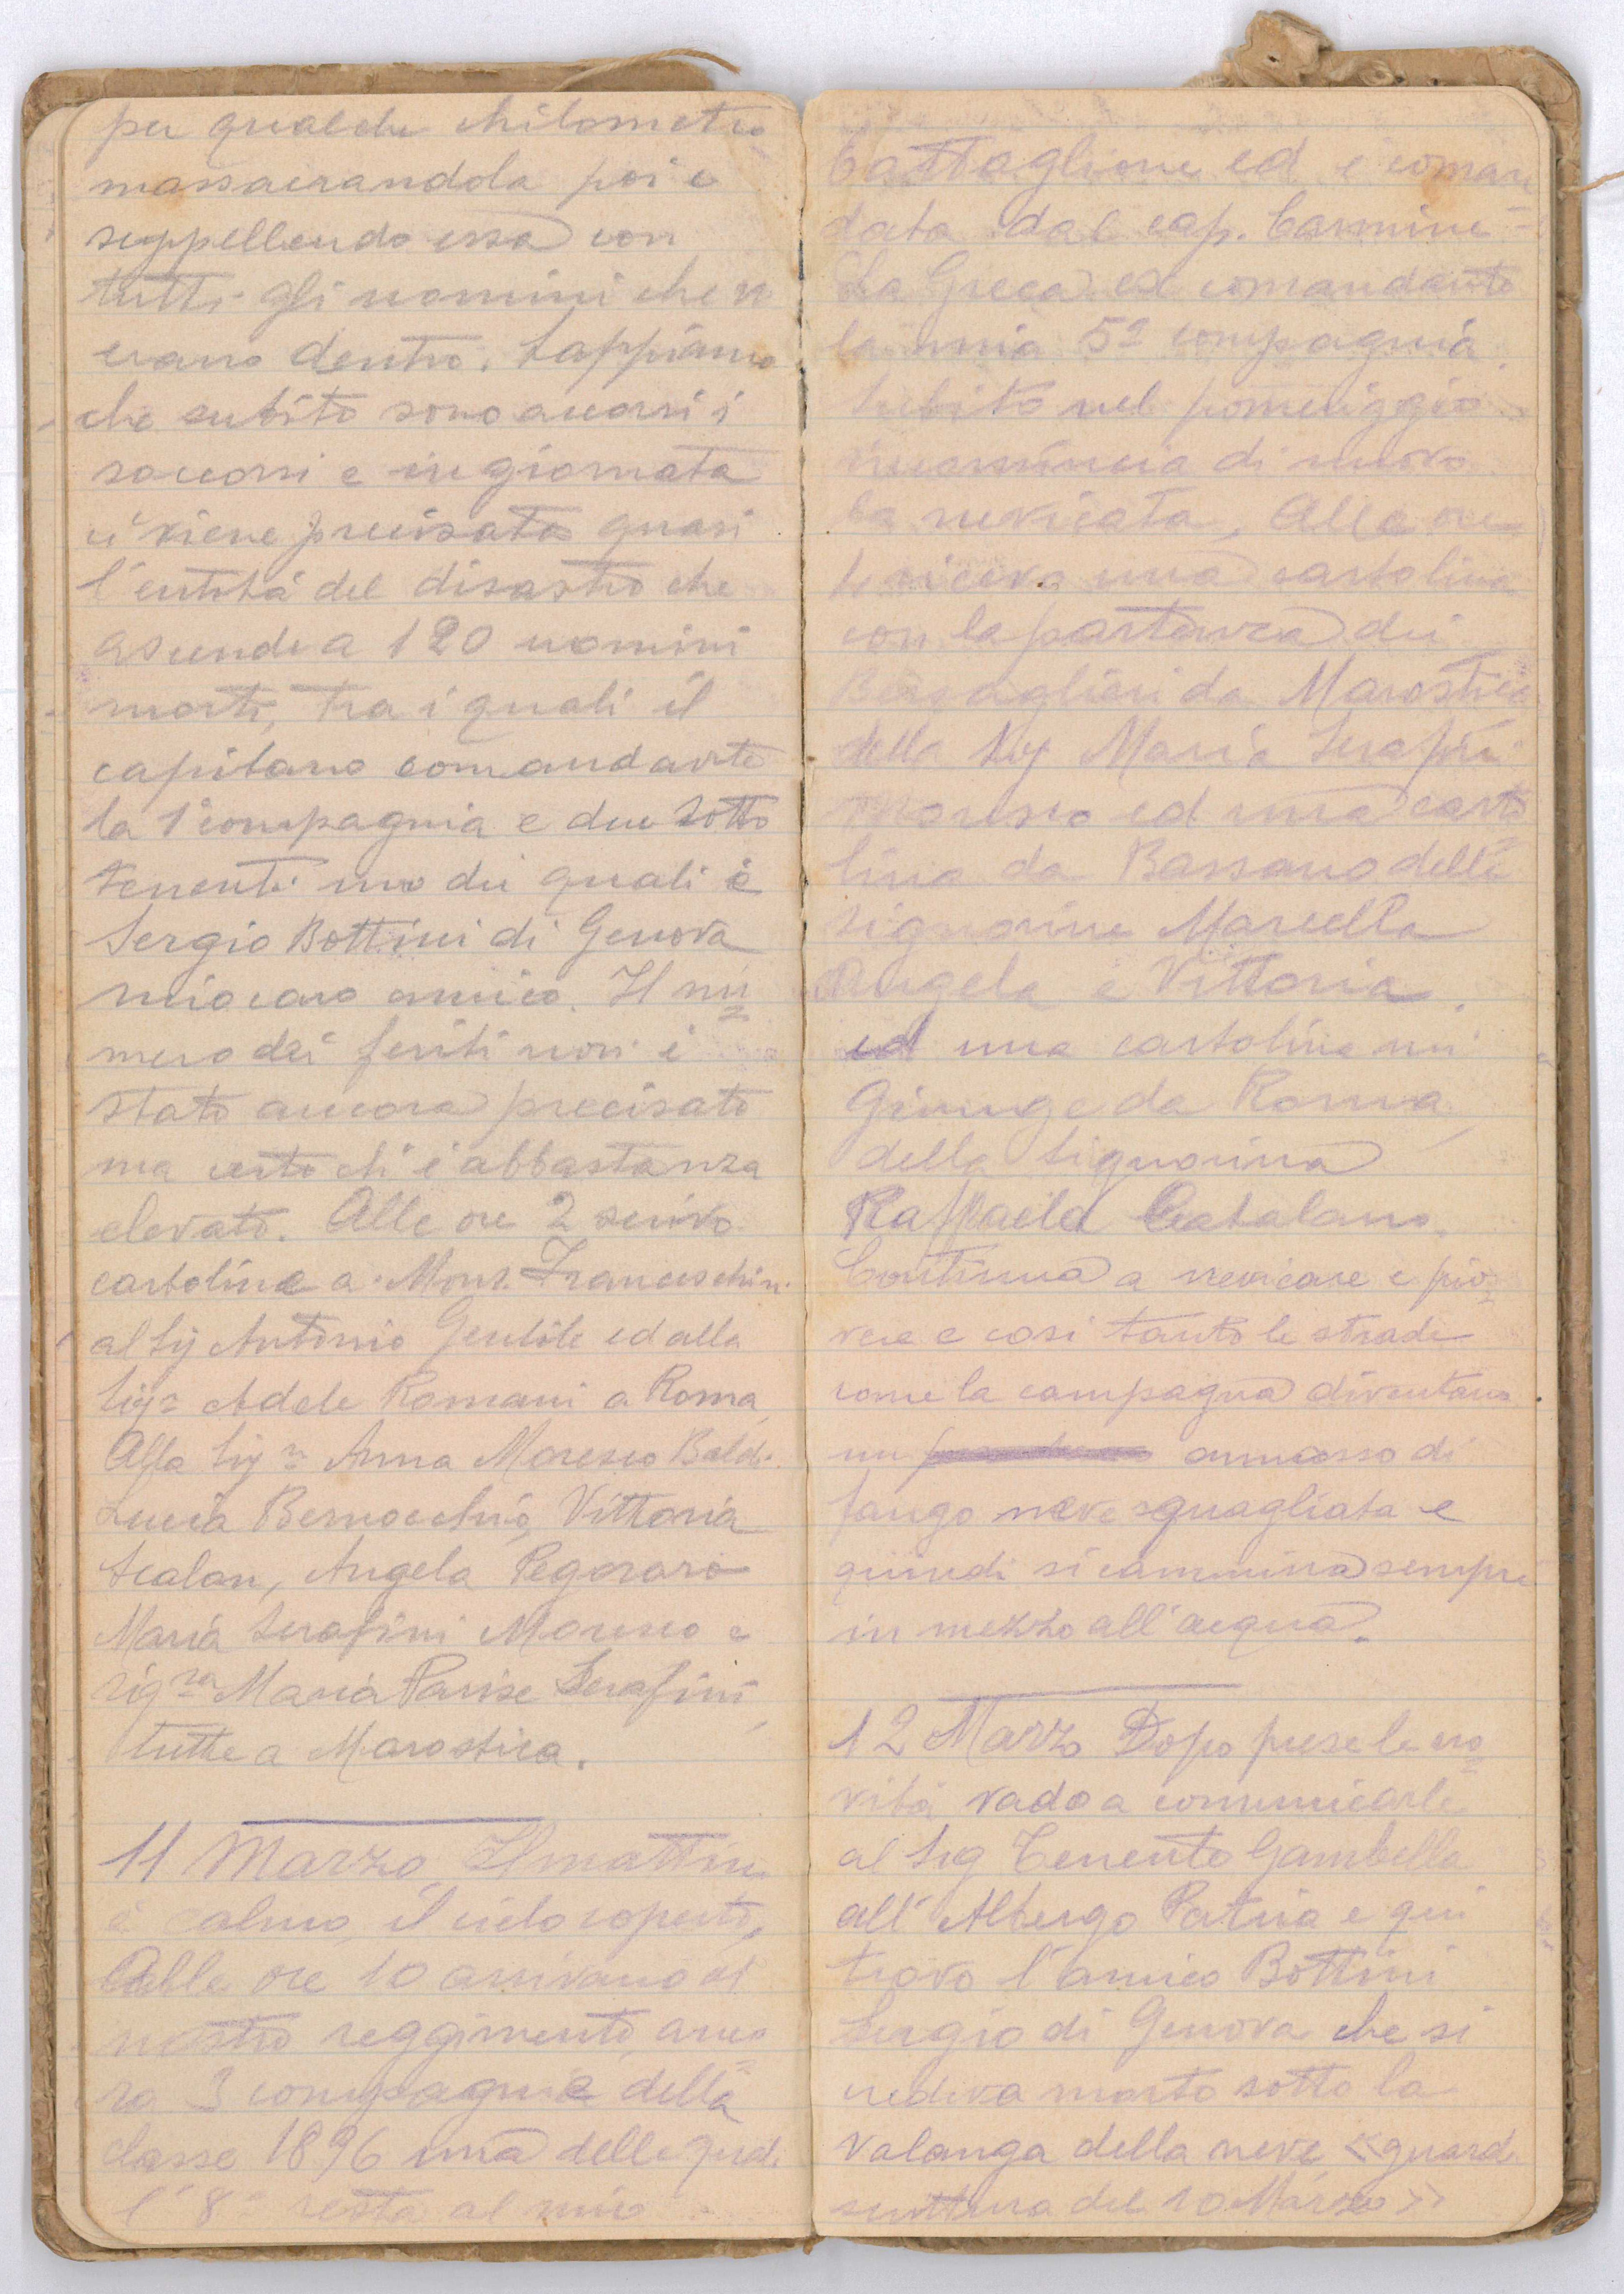 per qualche chilometro
massacrandola poi e
seppellendo essa con
tutti gli uomini che v'
erano dentro. Sappiamo
che subito sono accorsi i
soccorsi e in giornata
ci viene precisato quasi
l'entità del disastro che
ascende a 120 uomini
morti, tra i quali il
capitano comandante
la 1a compagnia e due sotto
tenenti uno dei quali è
Sergio Bottini di Genova
mio caro amico. Il nu=
mero dei feriti non è
stato ancora precisato
ma certo ch'è abbastanza
elevato. Alle ore 2 scrivo
cartoline a Mons. Franceschin
al Sig Antonio Gentile ed alla
Sigra Adele Romani a Roma,
Alla Sigra Anna Moresco Baldi
Lucia Bernocchi, Vittoria
Scalan, Angela Pegoraro
Maria Serafini Moresco e
sigra Maria Parise Serafini,
tutte a Marostica.
11 Marzo Il mattino
è calmo, il cielo coperto,
Alle ore 10 arrivano al
nostro reggimento, anco=
ra 3 compagnie della
classe 1896 una delle quali
l'8a resta al mio
battaglione ed è coman=
data dal cap. Carmine
La Greca ex comandante
la mia 5a compagnia.
Subito nel pomeriggio
ricomincia di nuovo
la nevicata. Alle ore
4 ricevo una cartolina
con la partenza dei
Bersaglieri da Marostica
della Sig Maria Serafini
Moresco ed una carto
lina da Bassano delle
signorine Marcella
Angela e Vittoria,
ed una cartolina mi
giunge da Roma,
della Signorina
Raffaela Catalano.
Continua a nevicare e pio=
vere e così tanto le strade
come la campagna diventano
un ammasso di
fango neve squagliata e
quindi si cammina sempre
in mezzo all'acqua.
12 Marzo Dopo prese le no=
vità vado a comunicarle
al Sig Tenente Gambella
all'Albergo Patria e qui
trovo l'amico Bottini
Sergio di Genova che si
credeva morto sotto la
valanga della neve «guarda
scrittura del 10 Marzo»